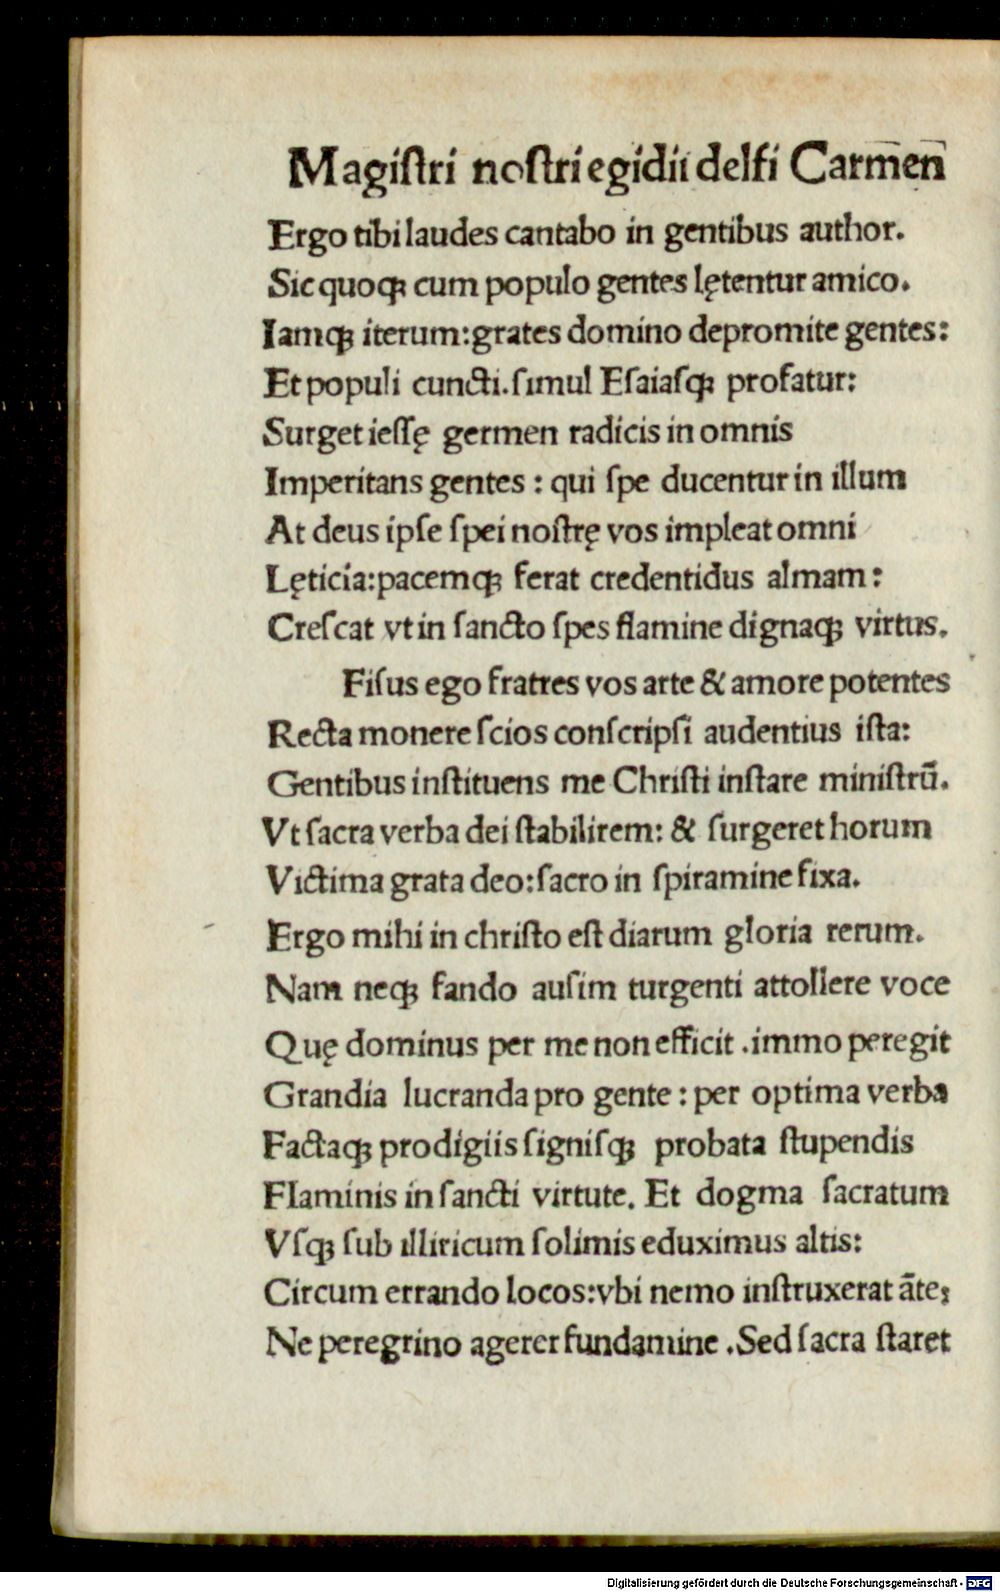 Magiſtri noſtri egidii delfi Carm̄en̄
Ergo tibi laudes cantabo in gentibus author.
Sic quoqꝫ cum populo gentes lętentur amico.
Iamqꝫ iterum:grates domino depromite gentes:
Et populi cuncti.ſimul Eſaiaſqꝫ profatur:
Surget ieſſę germen radicis in omnis
Imperitans gentes : qui ſpe ducentur in illum
At deus ipſe ſpei noſtrę vos impleat omni
Lęticia:pacemqꝫ ferat credentidus almam:
Creſcat vt in ſancto ſpes flamine dignaqꝫ virtus.
Fiſus ego fratres vos arte & amore potentes
Recta monere ſcios conſcripſi audentius iſta:
Gentibus inſtituens me Chriſti inſtare miniſtrū.
Vt ſacra verba dei ſtabilirem: & ſurgeret horum
Victima grata deo:ſacro in ſpiramine fixa.
Ergo mihi in chriſto eſt diarum gloria rerum.
Nam neqꝫ fando auſim turgenti attollere voce
Quę dominus per me non efficit .immo peregit
Grandia lucranda pro gente : per optima verba
Factaqꝫ prodigiis ſigniſqꝫ probata ſtupendis
Flaminis in ſancti virtute. Et dogma ſacratum
Vſqꝫ ſub illiricum ſolimis eduximus altis:
Circum errando locos:vbi nemo inſtruxerat āte;
Ne peregrino agerer fundamine .Sed ſacra ſtaret
Digitalisierung gefördert durch die Deutsche Forschungsgemeinschaft - DFG